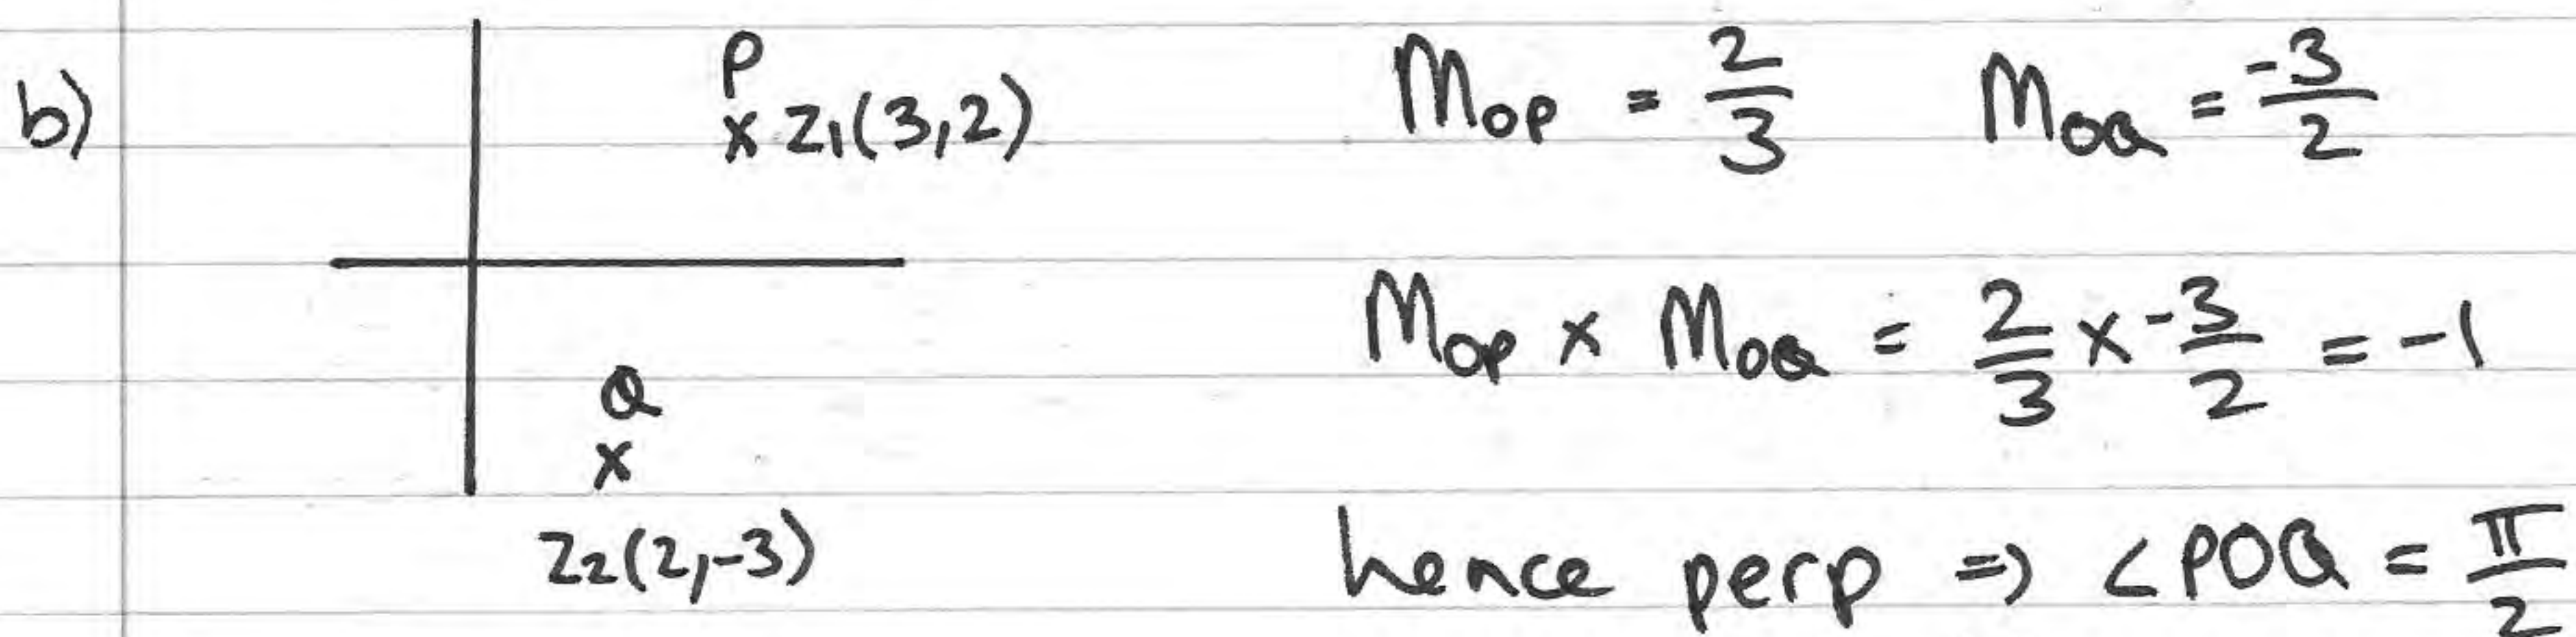 b)
P
x Z₁(3,2)
Q
x
Z₂(2,-3)
M_OP = 2/3    M_OQ = -3/2
M_OP x M_OQ = 2/3 x -3/2 = -1
hence perp => <POQ = π/2